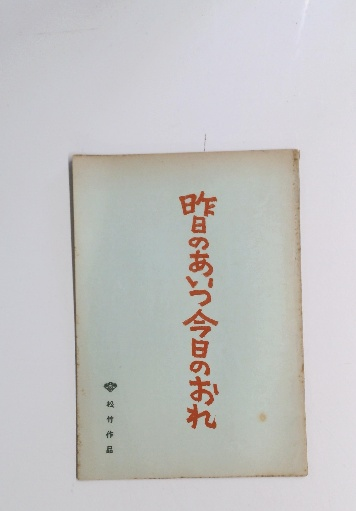 昨日のあいつ今日のおれ
松竹作品